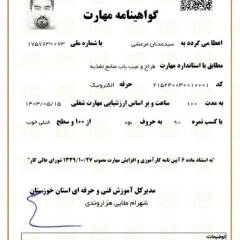 گواهینامه مهارت
اعطا می گردد به سیدعدنان مرعشی با شماره ملی ۱۷۵۷۸۳۰۰۷۳
مطابق با استاندارد مهارت طراح و عیب یاب منابع تغذیه
کد ۲۱۵۲۴۰۰۳۰۰۱۰۰۰۱ حرفه الکترونیک
به مدت ۱۰۰ ساعت و بر اساس ارزشیابی مهارت شغلی ۱۴۰۳/۰۵/۱۵
با کسب نمره ۹۰ به حروف نود از ۱۰۰ و سطح خیلی خوب
به استناد ماده ۶ آیین نامه کارآموزی و افزایش مهارت مصوب ۱۳۴۹/۱۰/۲۷ شورای عالی کار"
مدیرکل آموزش فنی و حرفه ای استان خوزستان
شهرام ملایی هزاروندی
توضیحات: